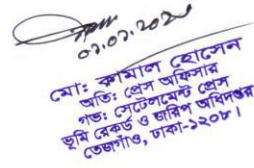 ০১.০১.২০২৮
মো: কামাল হোসেন
অতি: প্রেস অফিসার
গভ: সেটেলমেন্ট প্রেস
ভূমি রেকর্ড ও জরিপ অধিদপ্তর
তেজগাঁও, ঢাকা-১২০৮।